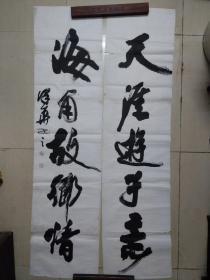 天涯遊子意
海角故鄉情